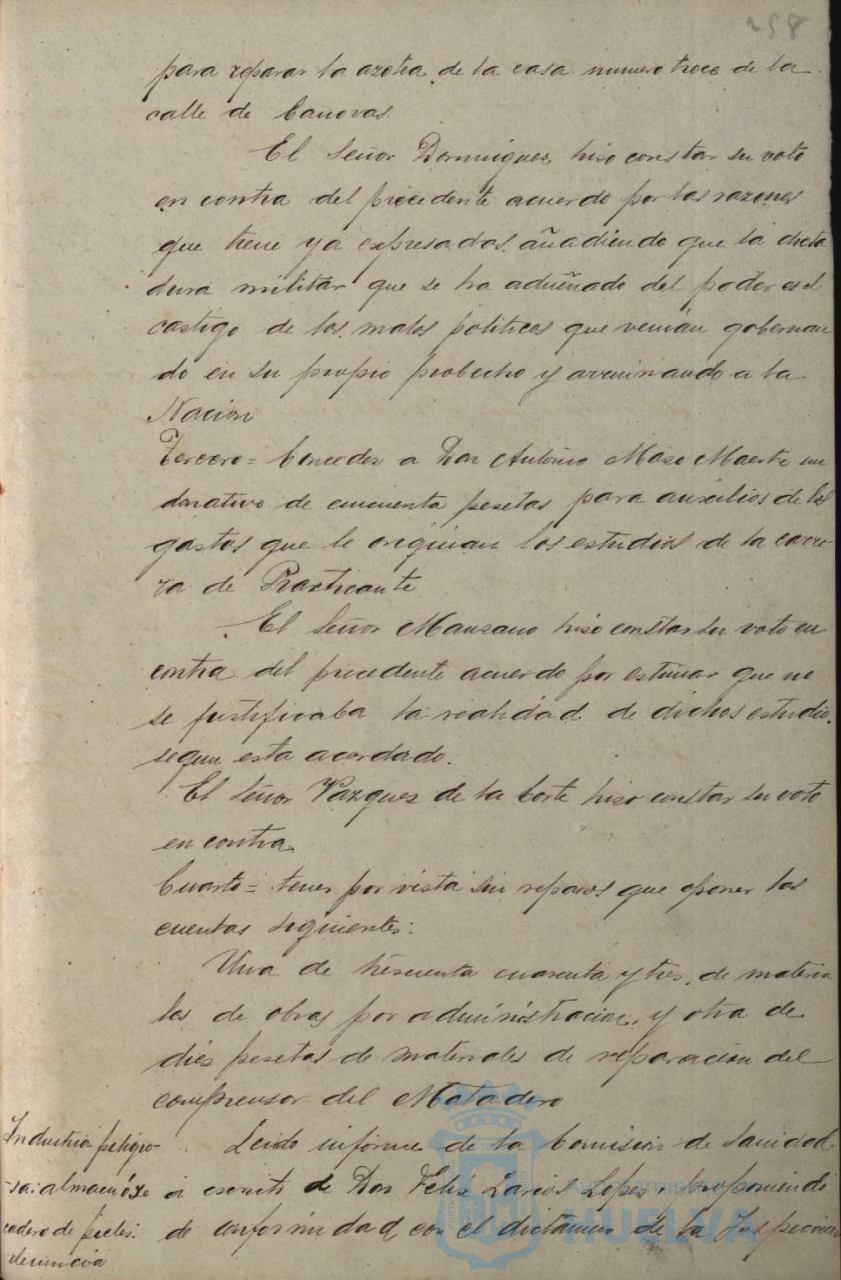 258
para reparar la azotea de la casa numero trece de la
calle de Canovas.
El Señor Dominguez, hiso constar su voto
en contra del precedente acuerdo por las razones
que tiene ya expresadas añadiendo que la dicta
dura militar que se ha adueñado del poder es el
castigo de los malos politicos que venian gobernan
do en su propio probecho y arruinando a la
Nacion
Tercero = Conceder a Don Antonio Maestre un
donativo de cincuenta pesetas para auxilios de los
gastos que le originan los estudios de la carre-
ra de Practicante
El Señor Manzano hiso constar su voto en
contra del precedente acuerdo por estimar que no
se justificaba la realidad de dichos estudios
segun esta acordado.
El Señor Vazquez de la Corte hiso constar su voto
en contra.
Cuarto = tener por vista sin reparos que oponer las
cuentas siguientes:
Una de cuarenta y tres, de materia
les de obras por administracion, y otra de
dies pesetas de materiales de reparacion del
compresor del Matadero
Industria peligro-
sa: almacén
de pieles.
denuncia
Leido informe de la Comision de Sanidad
a escrito de Don Felix Larios Lopes, proponiendo
de conformidad con el dictamen de la Inspeccion
HUELVA